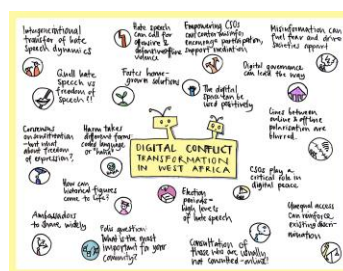 Intergenerational
transfer of hate
speech dynamics
Hate speech
can call for
offensive &
definitive offline
violence
Empowering CSOs
encourages participation,
support mediation
Misinformation can
fuel fear and drive
societies apart
Quell hate
speech vs
freedom of
speech?!
Foster home-
grown solutions
The digital
space can be
used positively
Digital governance
can lead the way
Lines between
online & offline
polarisation are
blurred.
Consensus
on moderation
-but what
about freedom
of expression?
Harm takes
different forms:
coded language
or "hahas"
DIGITAL CONFLICT
TRANSFORMATION
IN WEST AFRICA
How can
historical figures
come to life?
Election
periods =
high levels
of hate speech
CSOs play a
critical role in
digital peace
Ambassadors
to share widely
Polis question:
What is the most
important for your
community?
Consultation of
those who are usually
not consulted - online!
Unequal access
can reinforce
existing discri-
mination